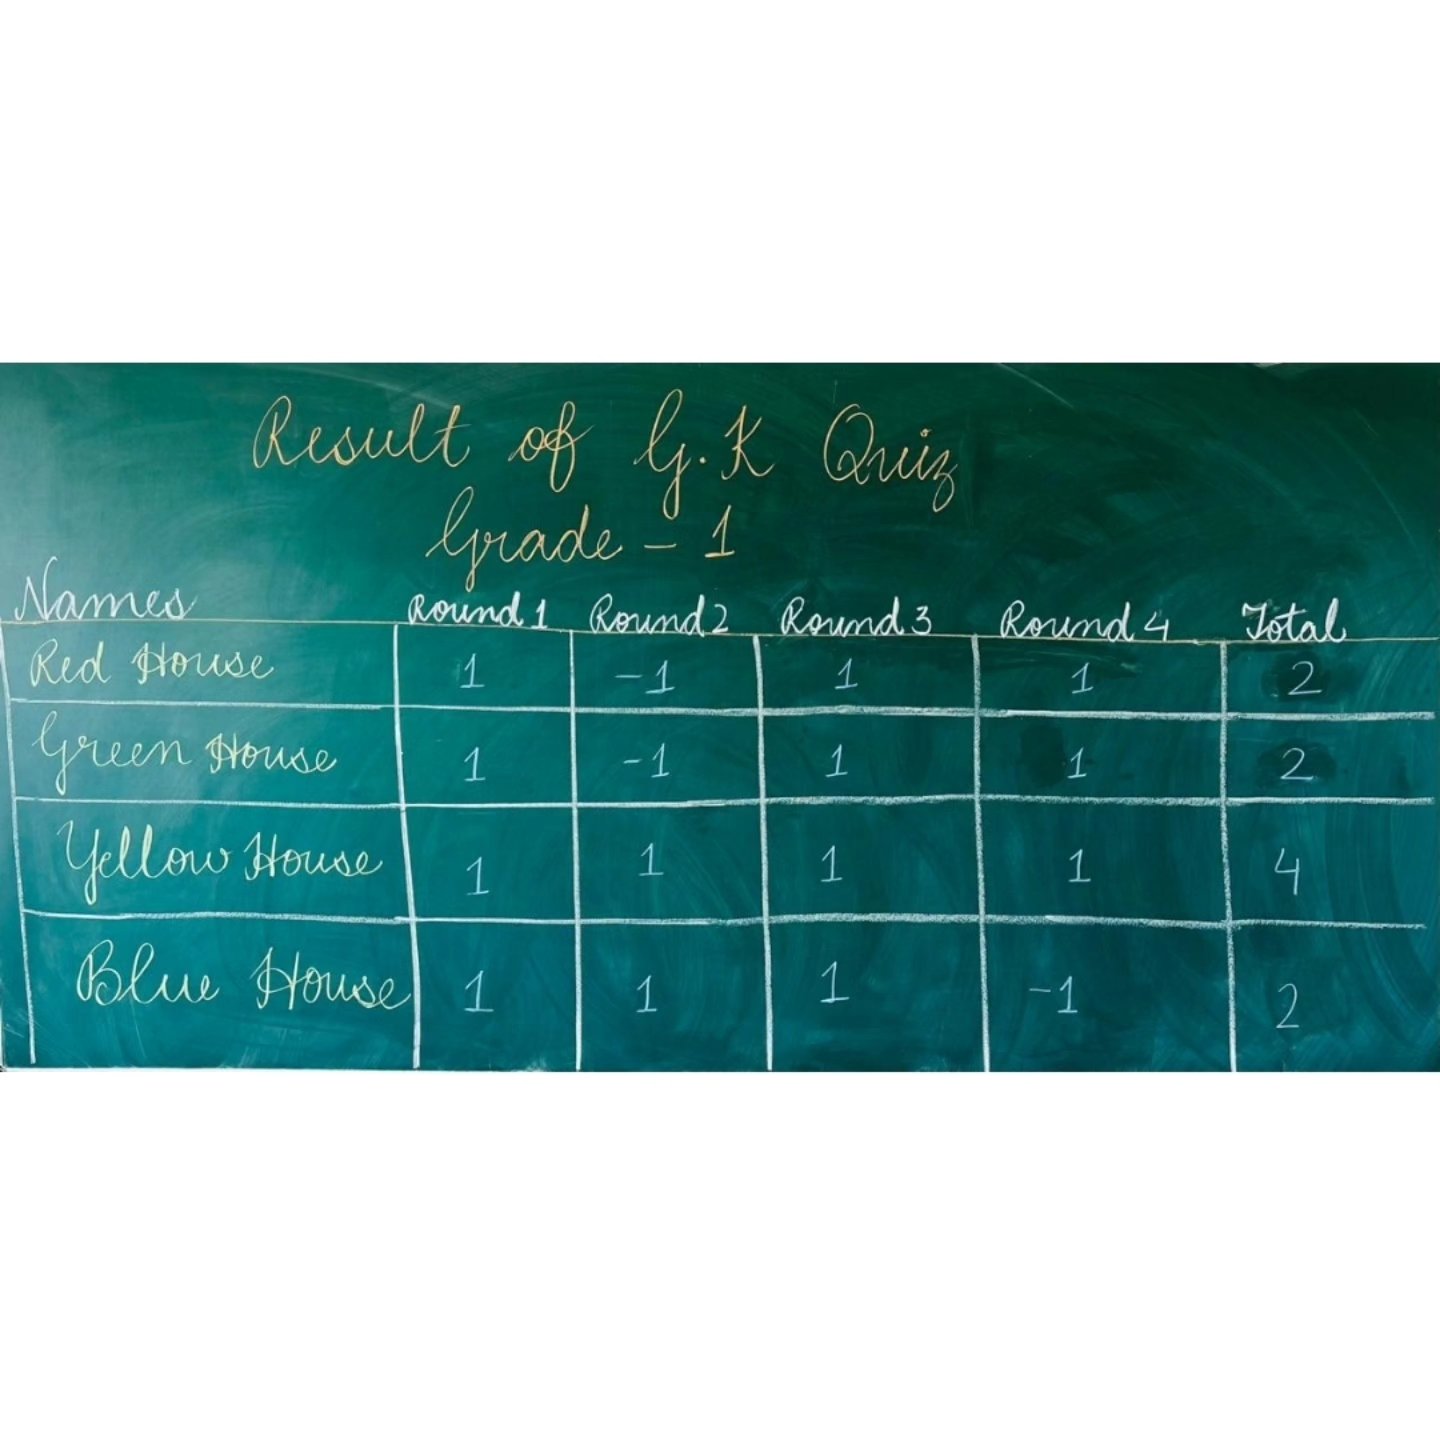 Result of G.K Quiz
Grade - 1
Names Round 1 Round 2 Round 3 Round 4 Total
Red House 1 -1 1 1 2
Green House 1 -1 1 1 2
Yellow House 1 1 1 1 4
Blue House 1 1 1 -1 2